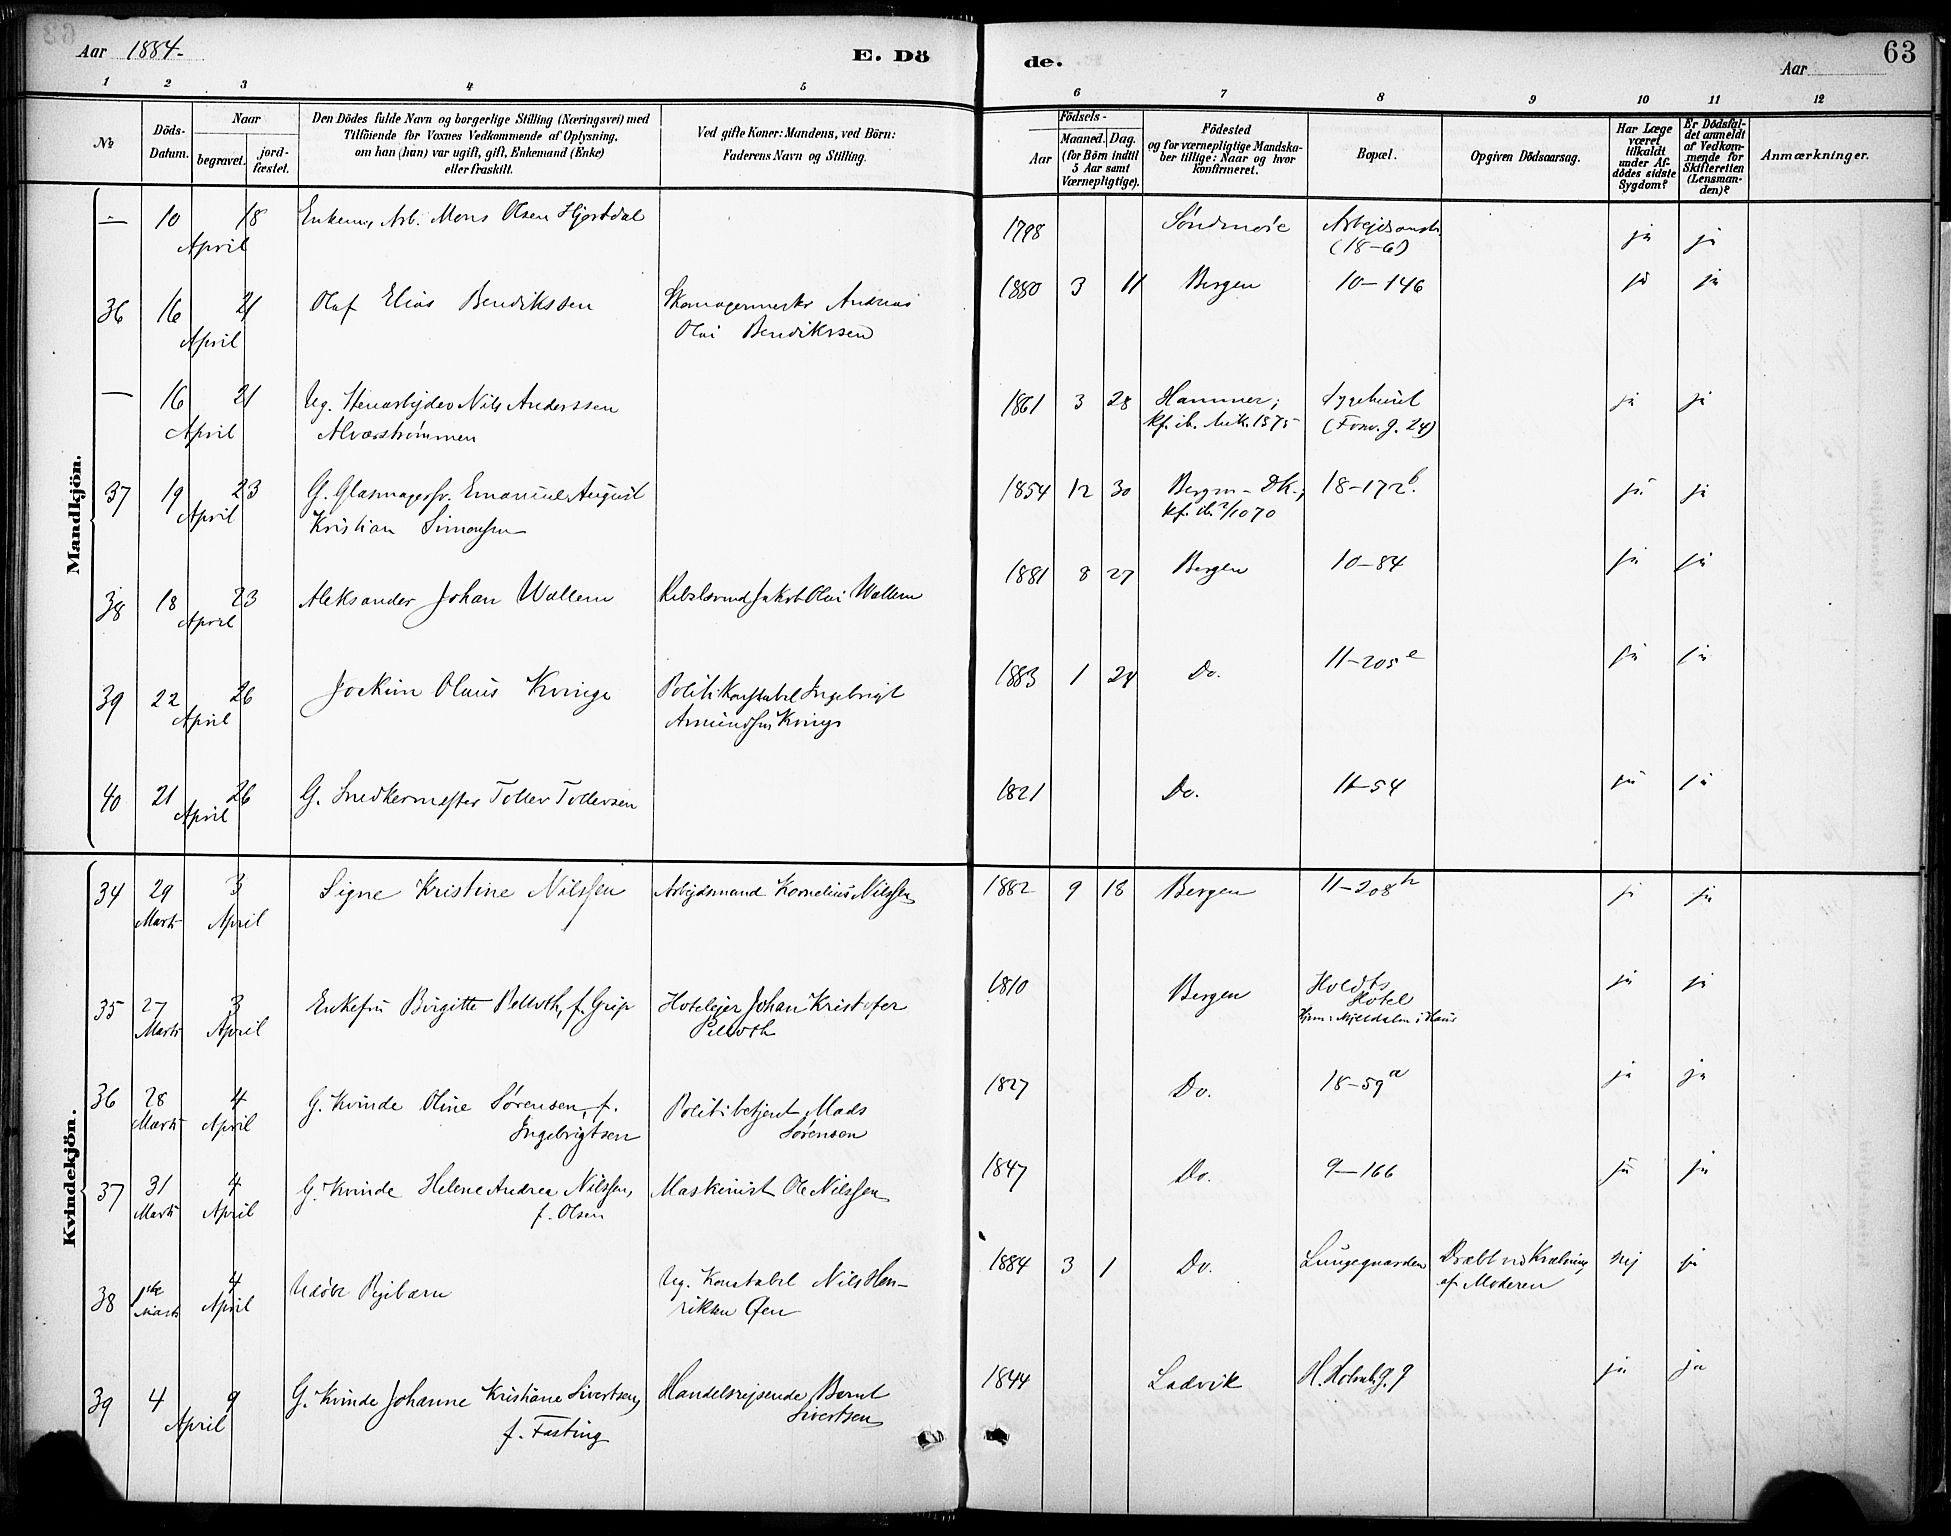 Aar 1884. E. Dö de. Aar 63
1 2 3 4 5 6 7 8 9 10 11 12
№
Döds-Datum.
Naar
begravet.
jord-fæstet.
Den Dödes fulde Navn og borgerlige Stilling (Næringsvei) med
Tilföiende for Voxnes Vedkommende af Oplysning,
om han (hun) var ugift, gift, Enkemand (Enke)
eller fraskilt.
Ved gifte Koner: Mandens, ved Börn:
Faderens Navn og Stilling.
Födsels-
Aar
Maaned. Dag.
(for Börn indtil
5 Aar samt
Værnepligtige).
Födested
og for værnepligtige Mandska-
ber tillige: Naar og hvor
konfirmeret.
Bopæl.
Opgiven Dödsaarsag.
Har Læge
været
tilkaldt
under Af-
dödes sidste
Sygdom?
Er Dödsfal-
det anmeldt
af Vedkom-
mende for
Skifteretten
(Lensman-
den)?
Anmærkninger.
Mandkjön.
— 10 18 Enkem, Arb. Mons Olsen Hjortdal 1798 Søndmøre Arbejdsanst. ja ja
April (18-6)
36 16 21 Olaf Elias Bendikssen Skomagermester Andreas 1880 3 11 Bergen 10-146 ja ja
April Olai Bendikssen
— 16 21 Ug. Stenarbejder Nils Anderssen 1861 3 28 Hammer; Sygehuset ja ja
April Alverstrømmen kf. ib. Mik. 1875 (Forv. g. 24)
37 19 23 G. Glasmagersv. Emanuel August 1854 12 30 Bergen - DK.; 18-172b. ja ja
April Kristian Simonsen kf. ib. 2/10 70
38 18 23 Aleksander Johan Wallem Jakob Olai Wallem 1881 8 27 Bergen 10-84 ja ja
April
39 22 26 Joakim Olaus Kvinge Politikonstabel Ingebrigt 1883 1 24 Do. 11-205e ja ja
April Amundsen Kvinge
40 21 26 G. Snedkermester Tollev Tollevsen 1821 Do. 11-54 ja ja
April
Kvindekjön.
34 29 3 Signe Kristine Nilssen Arbejdsmand Kornelius Nilssen 1882 9 18 Bergen 11-208h ja ja
Marts April
35 27 3 Enkefru Birgitte Pelloth, f. Grip Hotelejer Johan Kristofer 1810 Bergen Holdts ja ja
Marts April Pelloth Hotel
Hjem: Mjeldalen i Haus
36 28 4 G. Kvinde Oline Sørensen, f. Politibetjent Mads 1827 Do. 18-59a ja ja
Marts April Ingebrigtsen Sørensen
37 31 4 G. Kvinde Helene Andrea Nilssen, Maskinist Ole Nilssen 1847 Do. 9-166 ja ja
Marts April f. Olsen
38 1ste 4 Udøbt Pigebarn Ug. Konstabel Nils Hen- 1884 3 1 Do. Lungegaarden Dræbt ved Kvælning nej ja
Marts April riksen Øen af Moderen
39 4 9 G. Kvinde Johanne Kristiane Sivertsen, Handelsrejsende Bernt 1844 Ladvik H. Holmb. g. 9 ja ja
April f. Fasting Sivertsen